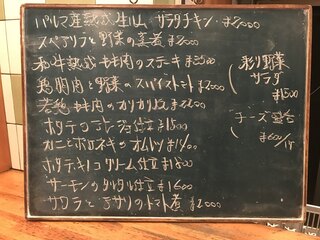 パルマ産熟成生ハム サラダチキン ¥2000
スペアリブと野菜の煮 ¥2000
和牛 肉のステーキ ¥3500
鶏肉と野菜のスパイストマト ¥2000
肉のカリカリ ¥2200
ホタテの ¥1500
カニとポロネギのオムレツ ¥1500
ホタテ クリーム仕立 ¥1800
サーモンのタルタル仕立 ¥1600
サワラとアサリのトマト煮 ¥2000
彩り野菜
サラダ
¥1500
チーズ盛合
¥600/1P